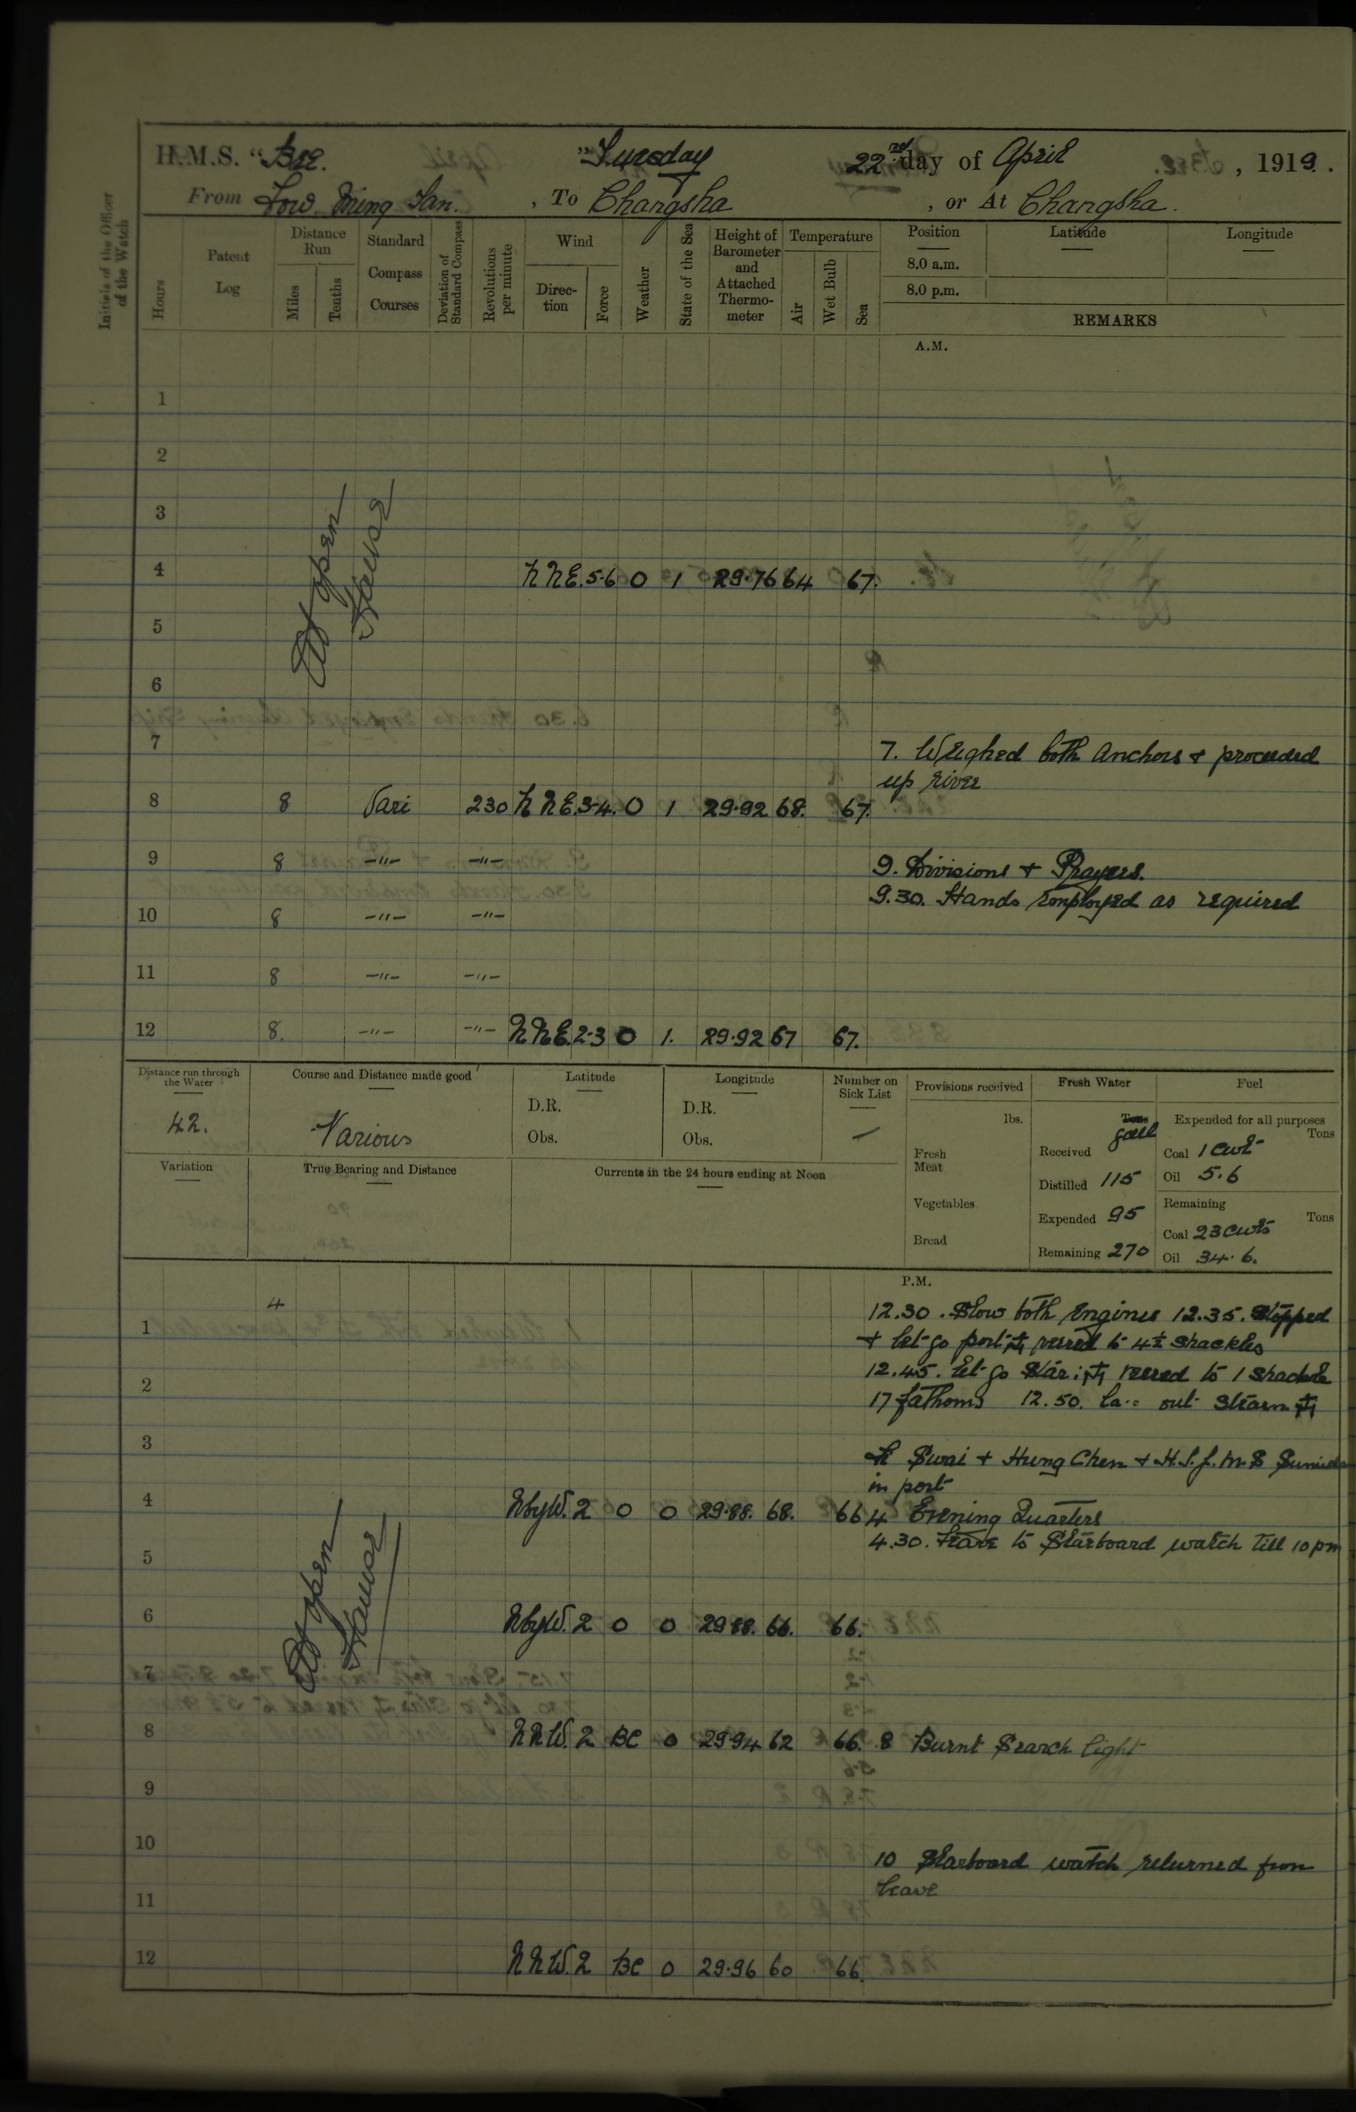 H.M.S. "Bee. " Tuesday 22nd day of April , 1919.
From Low Ming San. , To Changsha , or At Changsha.
Initials of the Officer of the Watch
Hours
Patent Log
Distance Run
Miles
Tenths
Standard Compass Courses
Deviation of Standard Compass
Revolutions per minute
Wind
Direction
Force
Weather
State of the Sea
Height of Barometer and Attached Thermometer
Temperature
Air
Wet Bulb
Sea
Position
8.0 a.m.
8.0 p.m.
Latitude
Longitude
REMARKS
A.M.
1
2
3
At open
4 NNE. 5-6 O 1 29.76 64 67.
5
6
7 7. Weighed both Anchors & proceeded
up river
8 8 Vari 230 NNE. 3-4. O 1 29.92 68. 67.
9 8 -"- -"- 9. Divisions & Prayers.
9.30. Hands employed as required
10 8 -"- -"-
11 8 -"- -"-
12 8. -"- -"- NNE. 2-3 O 1. 29.92 67 67.
Distance run through the Water
42.
Course and Distance made good
Various
Latitude
D.R.
Obs.
Longitude
D.R.
Obs.
Number on Sick List
—
Variation
True Bearing and Distance
Currents in the 24 hours ending at Noon
Provisions received
lbs.
Fresh Meat
Vegetables
Bread
Fresh Water
Tons
gall
Received
Distilled 115
Expended 95
Remaining 270
Fuel
Expended for all purposes
Tons
Coal 1 cwt
Oil 5.6
Remaining
Tons
Coal 23 cwts
Oil 34.6.
P.M.
4
12.30. Slow both Engines 12.35. Stopped
1 & let go port veered to 4½ shackles
12.45. Let go Star: veered to 1 shackle
2 17 fathoms 12.50. out stream
3 Swai & Hung Chen & H.I.J.M.S
in port
4 NbyW. 2 O O 29.88. 68. 66 4 Evening Quarters
4.30. Leave to Starboard watch till 10 pm
5
At open
6 NbyW. 2 O O 29.88. 66. 66.
7
8 NNW. 2 BC O 29.94 62 66. 8 Burnt Search light
9
10 10 Starboard watch returned from
leave
11
12 NNW. 2 BC O 29.96 60 66.